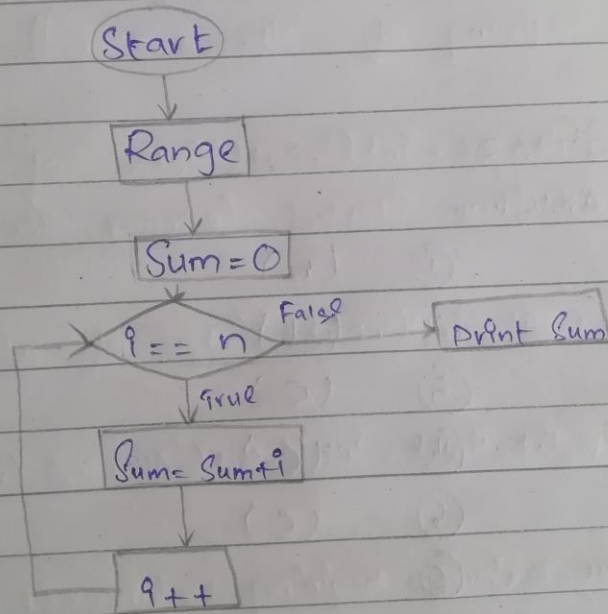 Start
Range
Sum = 0
i == n
False
Print Sum
True
Sum = Sum+i
i++